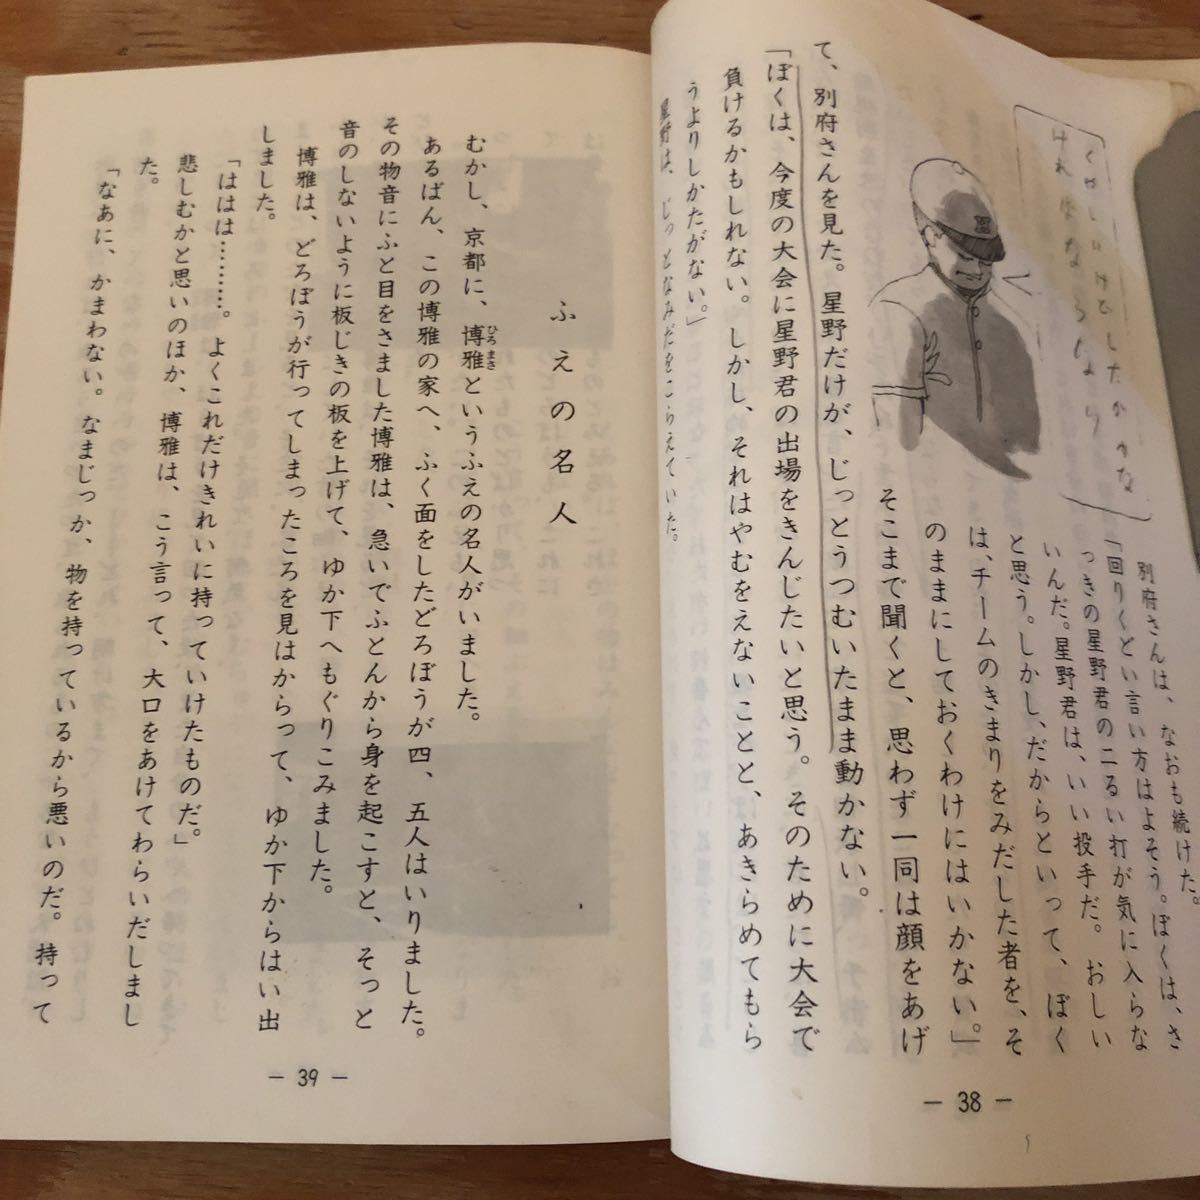 別府さんは、なおも続けた。
「回りくどい言い方はよそう。ぼくは、さ
っきの星野君の二るい打が気に入らな
いんだ。星野君は、いい投手だ。おしい
と思う。しかし、だからといって、ぼく
は、チームのきまりをみだした者を、そ
のままにしておくわけにはいかない。」
そこまで聞くと、思わず一同は顔をあげ
て、別府さんを見た。星野だけが、じっとうつむいたまま動かない。
「ぼくは、今度の大会に星野君の出場をきんじたいと思う。そのために大会で
負けるかもしれない。しかし、それはやむをえないことと、あきらめてもら
うよりしかたがない。」
星野は、じっとなみだをこらえていた。
— 38 —
ふえの名人
むかし、京都に、博雅というふえの名人がいました。
ひろまさ
あるばん、この博雅の家へ、ふく面をしたどろぼうが四、五人はいりました。
その物音にふと目をさました博雅は、急いでふとんから身を起こすと、そっと
音のしないように板じきの板を上げて、ゆか下へもぐりこみました。
博雅は、どろぼうが行ってしまったころを見はからって、ゆか下からはい出
しました。
「ははは………。よくこれだけきれいに持っていけたものだ。」
悲しむかと思いのほか、博雅は、こう言って、大口をあけてわらいだしまし
た。
「なあに、かまわない。なまじっか、物を持っているから悪いのだ。持って
— 39 —